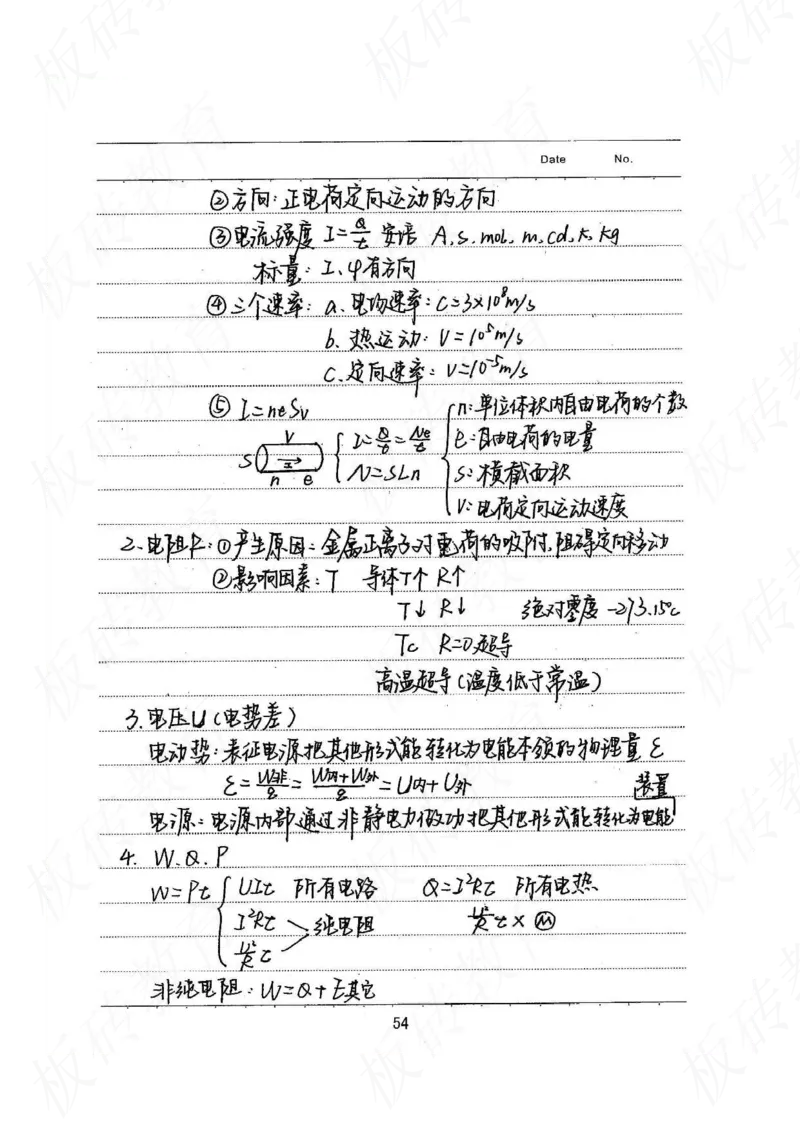 Date No.
②方向：正电荷定向运动的方向
③电流强度 I=Q/t 安培 A、s、mol、m、cd、K、kg
标量：I、φ有方向
④三个速率：a、电场速率：C=3×10⁸m/s
b、热运动：V=10⁵m/s
C、定向速率：V=10⁻⁵m/s
⑤ I=neSv
n：单位体积内自由电荷的个数
V I=Q/t=Ne/t e：自由电荷的电量
S I N=SLn S：横截面积
n e
V：电荷定向运动速度
2、电阻R：①产生原因：金属正离子对电荷的吸附，阻碍定向移动
②影响因素：T 导体T↑ R↑
T↓ R↓ 绝对零度 -273.15℃
Tc R=0超导
高温超导（温度低于常温）
3.电压U（电势差）
电动势：表征电源把其他形式能转化为电能本领的物理量 ε
ε=W非/q=W内+W外/q=U内+U外 装置
电源：电源内部通过非静电力做功把其他形式能转化为电能
4. W.Q.P
W=Pt UIt 所有电路 Q=I²Rt 所有电热
I²Rt 纯电阻 U²/R t × Ⓜ
U²/R t
非纯电阻：W=Q+E其它
54
板砖教育